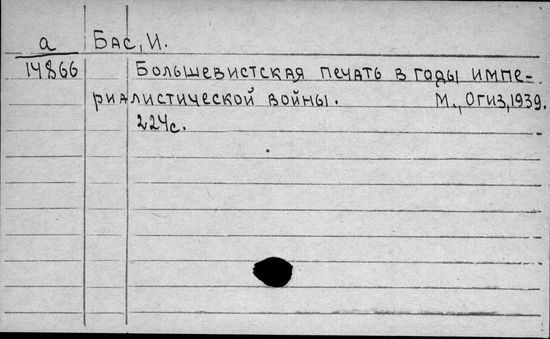 а Бас, И.
14866 Большевистская печать в годы импе-
риалистической войны. М., Огиз, 1939.
224с.